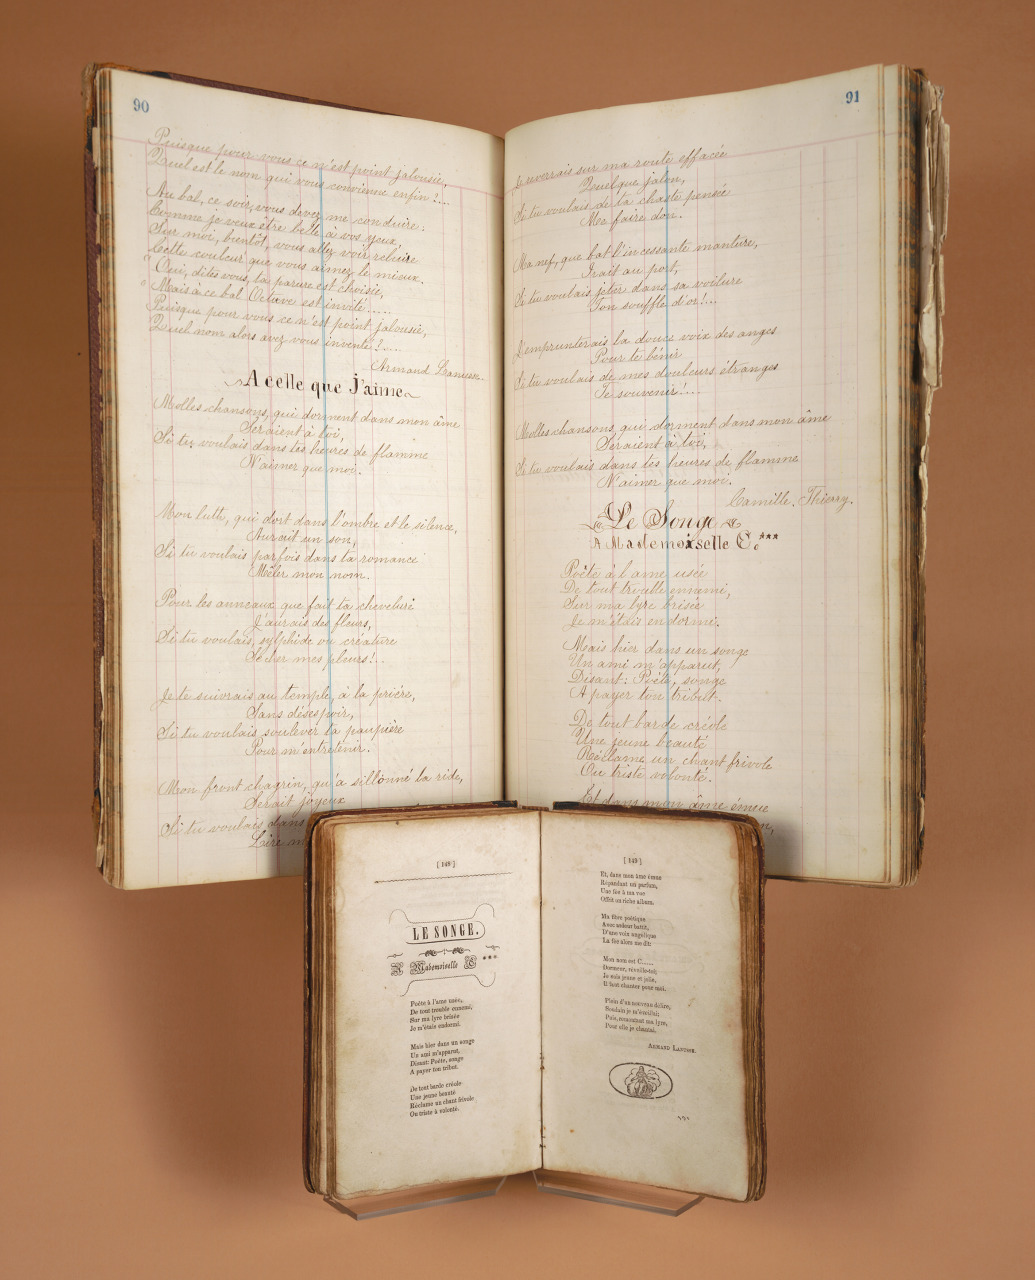 90
Puisque pour vous ce n'est point jalousie,
Quel est le nom qui vous convienne enfin?...
Au bal, ce soir, vous devez me conduire:
Comme je veux être belle à vos yeux,
Sur moi, bientôt, vous allez voir reluire
Cette couleur que vous aimez le mieux.
" Oui, dites vous, ta parure est choisie,
" Mais à ce bal Octave est invité.....
Puisque pour vous ce n'est point jalousie,
Quel nom alors avez vous inventé?...
Armand Lanusse
A celle que J'aime
Molles chansons, qui dorment dans mon âme
Seraient à toi,
Si tu voulais dans tes heures de flamme
N'aimer que moi.
Mon luth, qui dort dans l'ombre et le silence,
Aurait un son,
Si tu voulais parfois dans ta romance
Mêler mon nom.
Pour les anneaux que fait ta chevelure
J'aurais des fleurs,
Si tu voulais, sylphide ou créature
Sécher mes pleurs!..
Je te suivrais au temple, à la prière,
Sans désespoir,
Si tu voulais soulever ta paupière
Pour m'entretenir.
Mon front chagrin, qu'a sillonné la ride,
Serait joyeux
Si tu voulais dans
Lire
91
Je reverrais sur ma route effacée
Quelque jalon,
Si tu voulais de ta chaste pensée
Me faire don.
Ma nef, que bat l'incessante manture,
Irait au port,
Si tu voulais jeter dans sa voilure
Ton souffle d'or!...
J'emprunterais la douce voix des anges
Pour te bénir
Si tu voulais de mes douleurs étranges
Te souvenir!...
Molles chansons, qui dorment dans mon âme
Seraient à toi,
Si tu voulais dans tes heures de flamme
N'aimer que moi.
Camille Thierry.
Le Songe
A Mademoiselle C.***
Poète à l'ame usée
De tout trouble ennemi,
Sur ma lyre brisée
Je m'étais endormi.
Mais hier dans un songe
Un ami m'apparut,
Disant: Poète, songe
A payer ton tribut.
De tout barde créole
Une jeune beauté
Réclame un chant frivole
Ou triste volonté.
Et dans mon âme émue
[ 148 ]
LE SONGE.
A Mademoiselle C ***
Poète à l'ame usée,
De tout trouble ennemi,
Sur ma lyre brisée
Je m'étais endormi.
Mais hier dans un songe
Un ami m'apparut,
Disant: Poète, songe
A payer ton tribut.
De tout barde créole
Une jeune beauté
Réclame un chant frivole
Ou triste à volonté.
[ 149 ]
Et, dans mon âme émue
Répandant un parfum,
Une fée à ma vue
Offrit un riche album.
Ma fibre poétique
Avec ardeur battit,
D'une voix angélique
La fée alors me dit:
Mon nom est C......
Dormeur, réveille-toi;
Je suis jeune et jolie,
Il faut chanter pour moi.
Plein d'un nouveau délire,
Soudain je m'éveillai;
Puis, ramassant ma lyre,
Pour elle je chantai.
ARMAND LANUSSE.